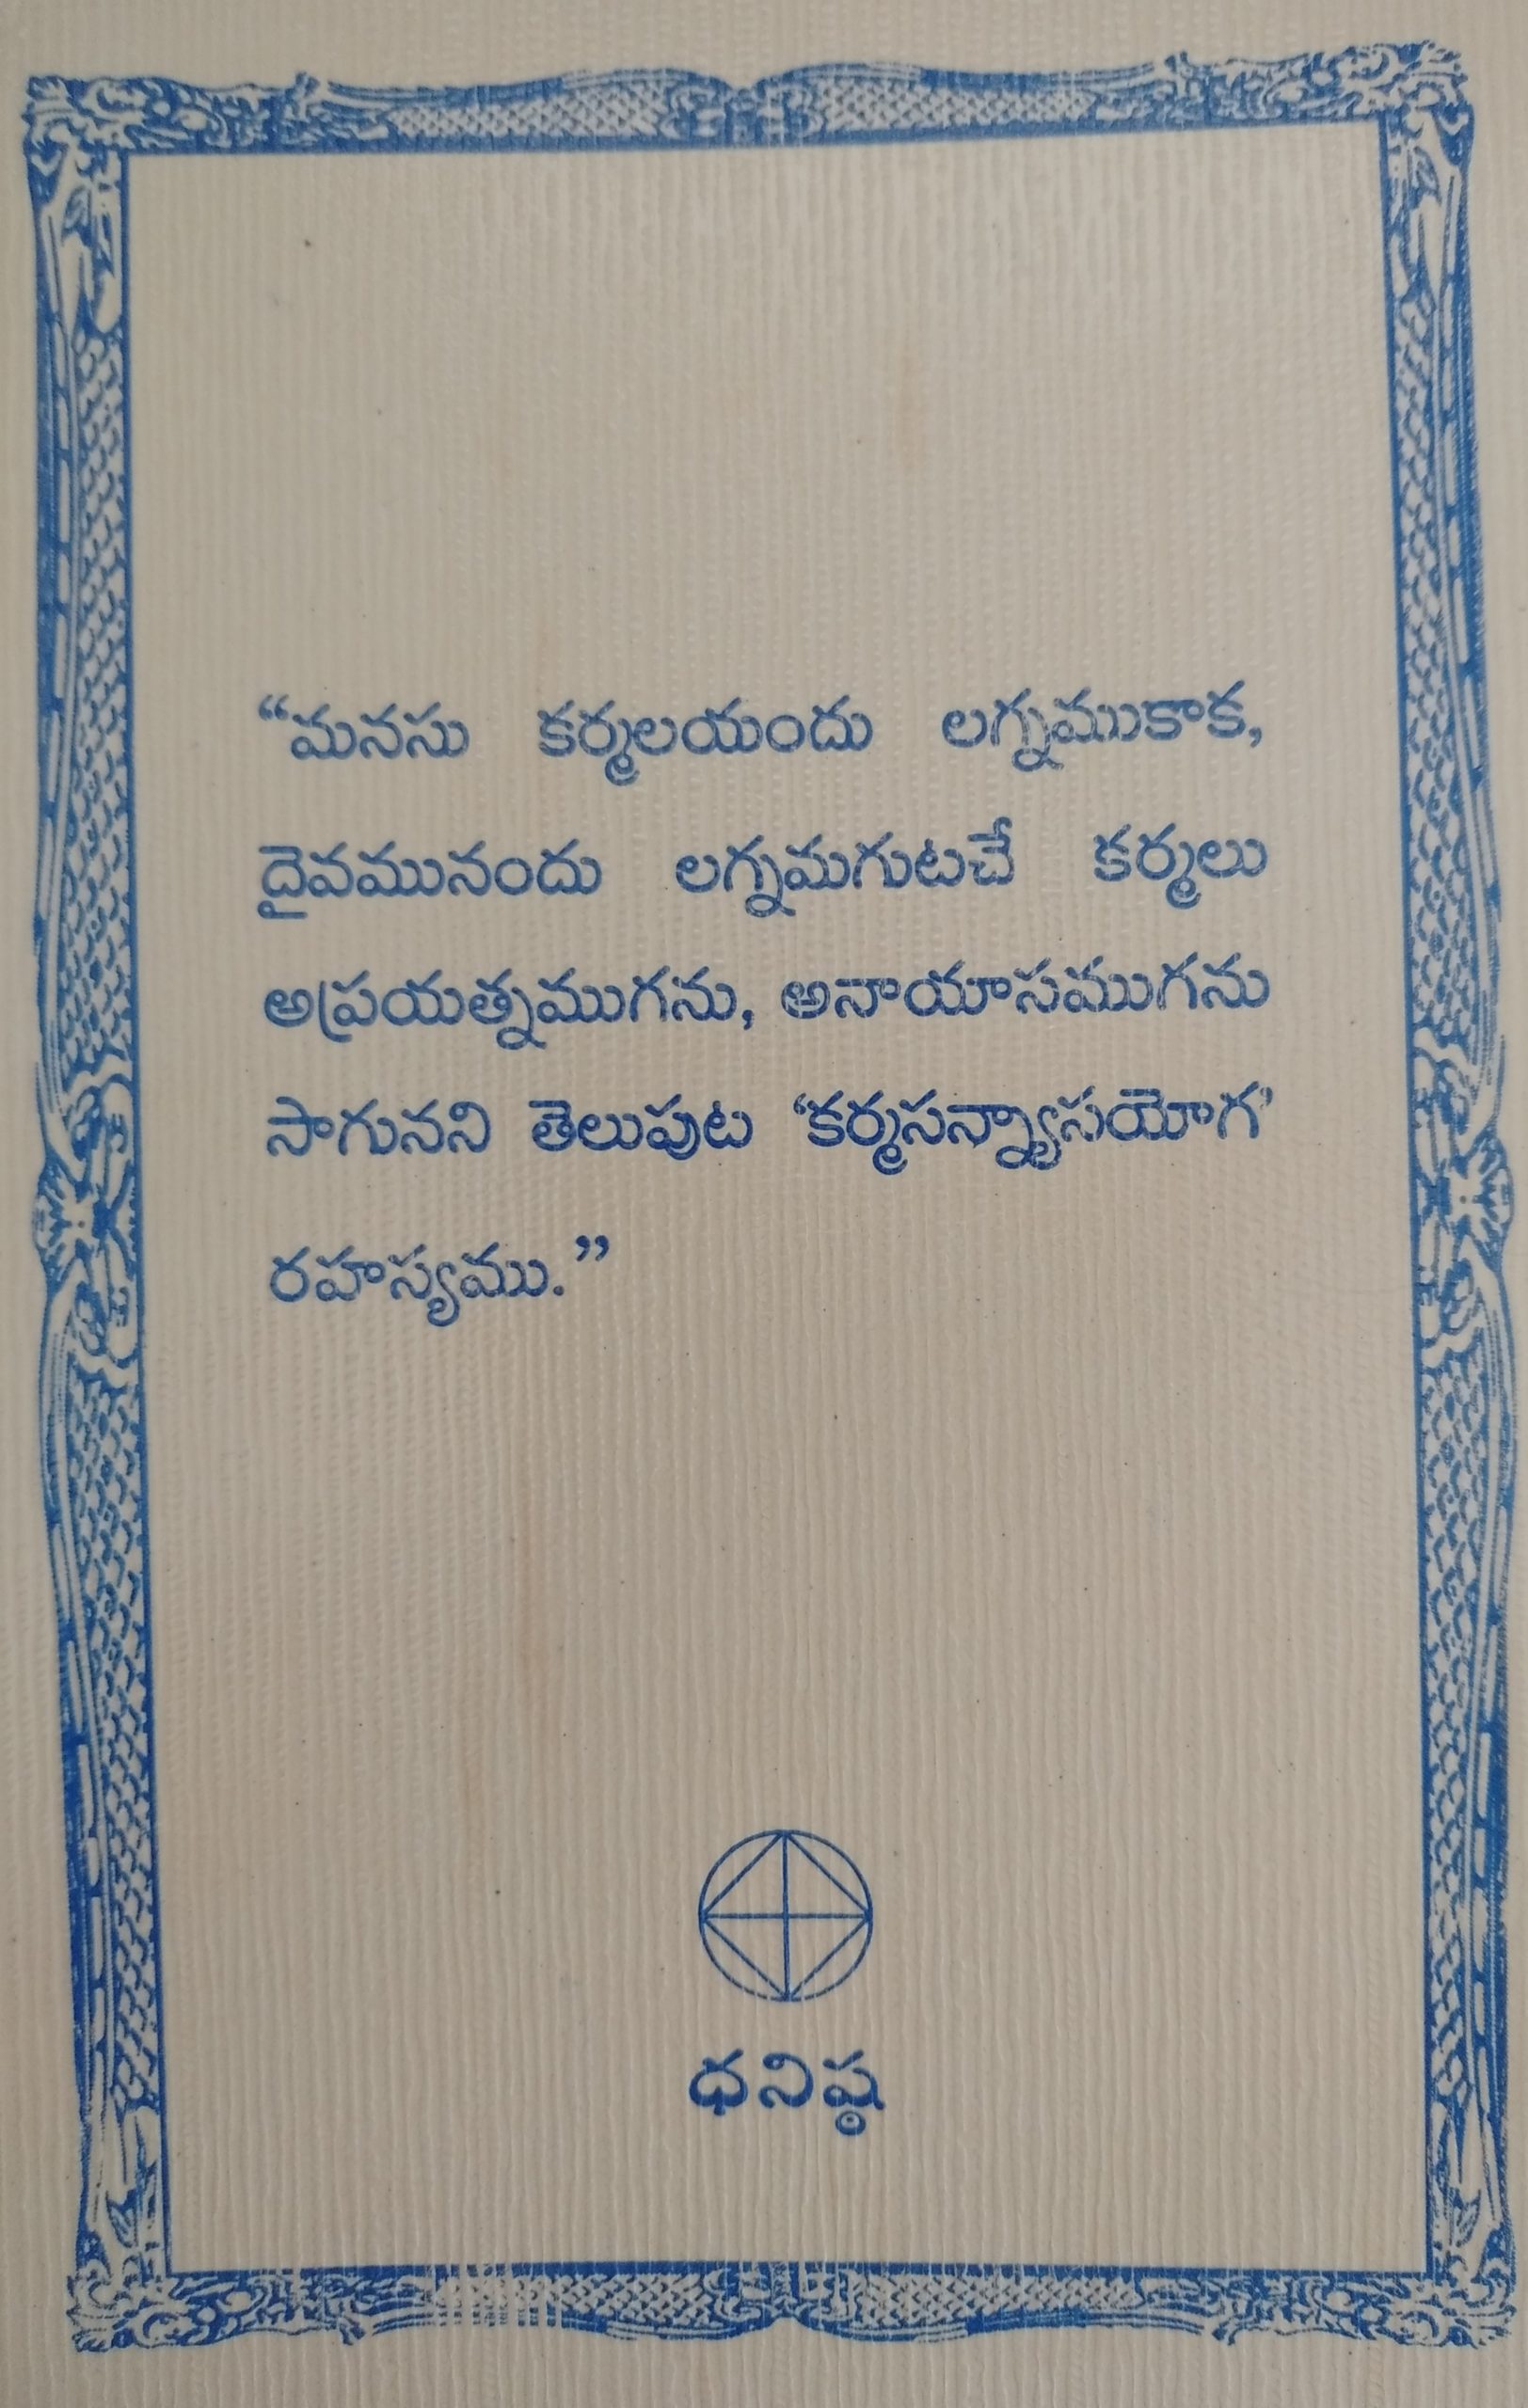 “మనసు కర్మలయందు లగ్నముకాక,
దైవమునందు లగ్నమగుటచే కర్మలు
అప్రయత్నముగను, అనాయాసముగను
సాగునని తెలుపుట ‘కర్మసన్న్యాసయోగ’
రహస్యము.”
ధనిష్ఠ